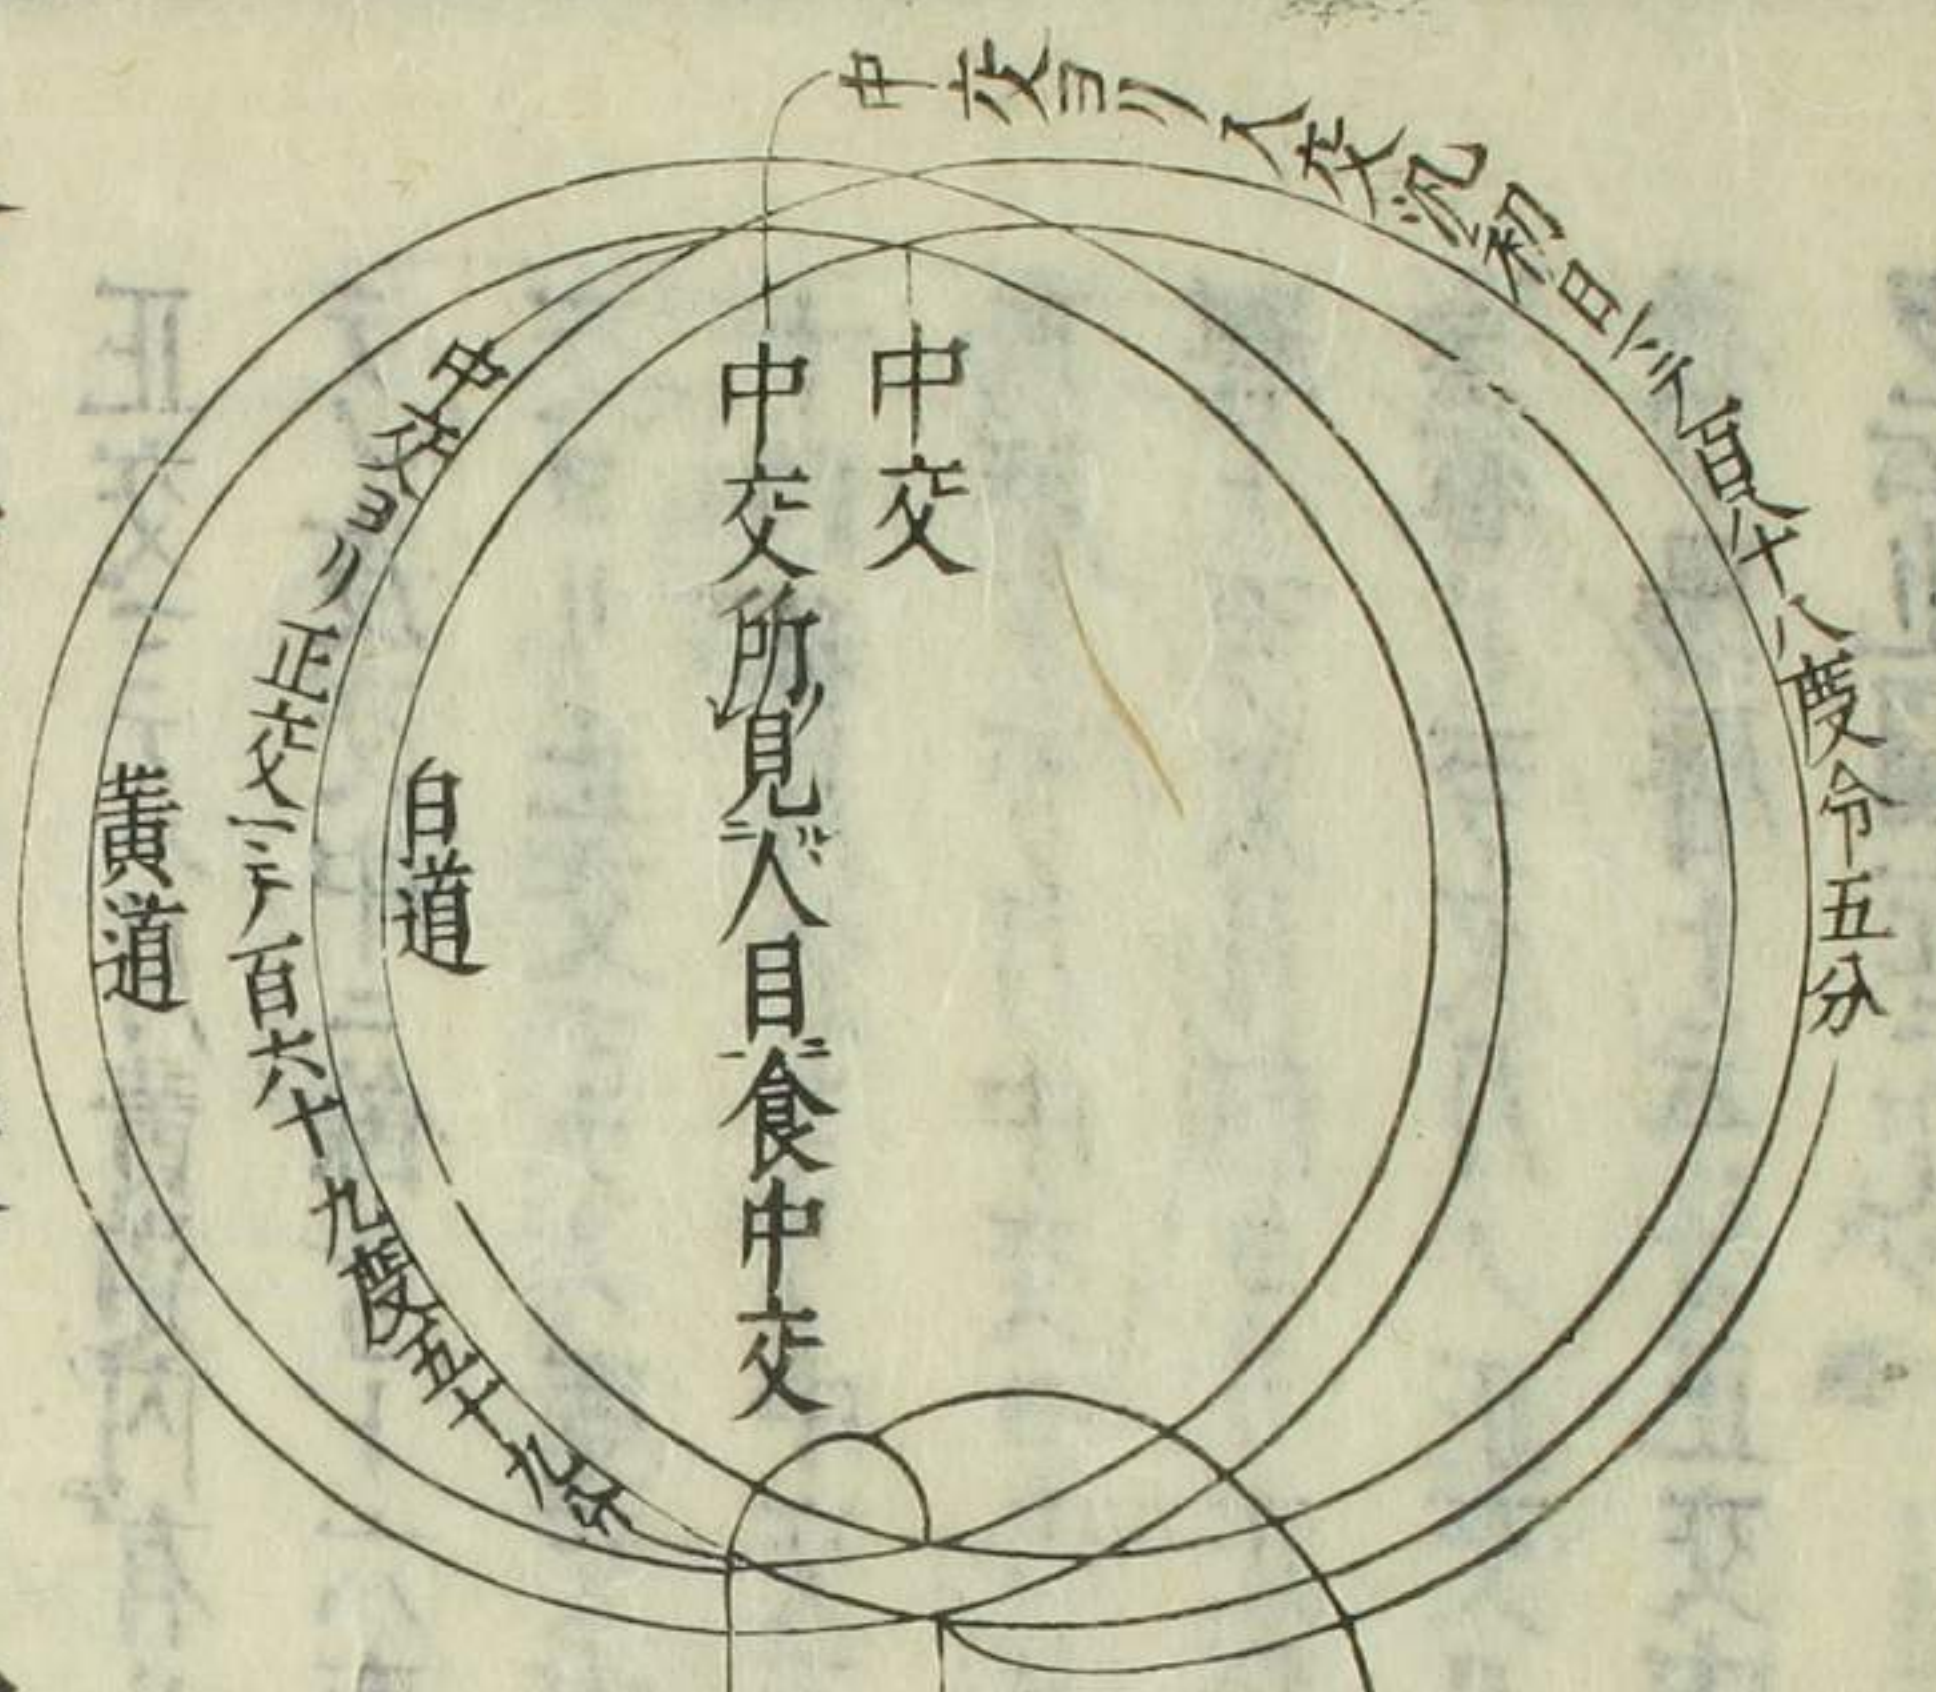 中交ヨリ入交汎初日ニテ百八十八度令五分
中交
中交所レ見ル二人目ニ一食中交
白道
中交ヨリ正交一ニテ百六十九度五十九分
黄道